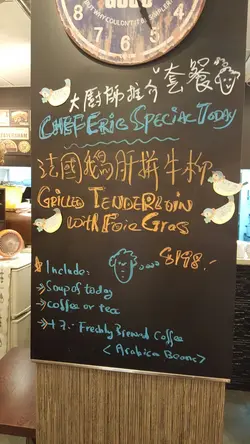 GOOD
BUT WHY COULDN'T IT BE SIMPLER
大廚師推介"套餐"
CHEF ERIC SPECIAL TODAY
法國鵝肝拼牛柳
GRILLED TENDERLOIN
with Foie Gras
$198.-
Include:
Soup of today
coffee or tea
+17.- Freshly Brewed Coffee
<Arabica Beans>